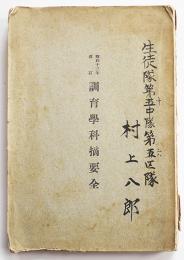 生徒隊第五中隊第五区隊
十
六
村上八郎
昭和十三年
改訂
訓育學科摘要全